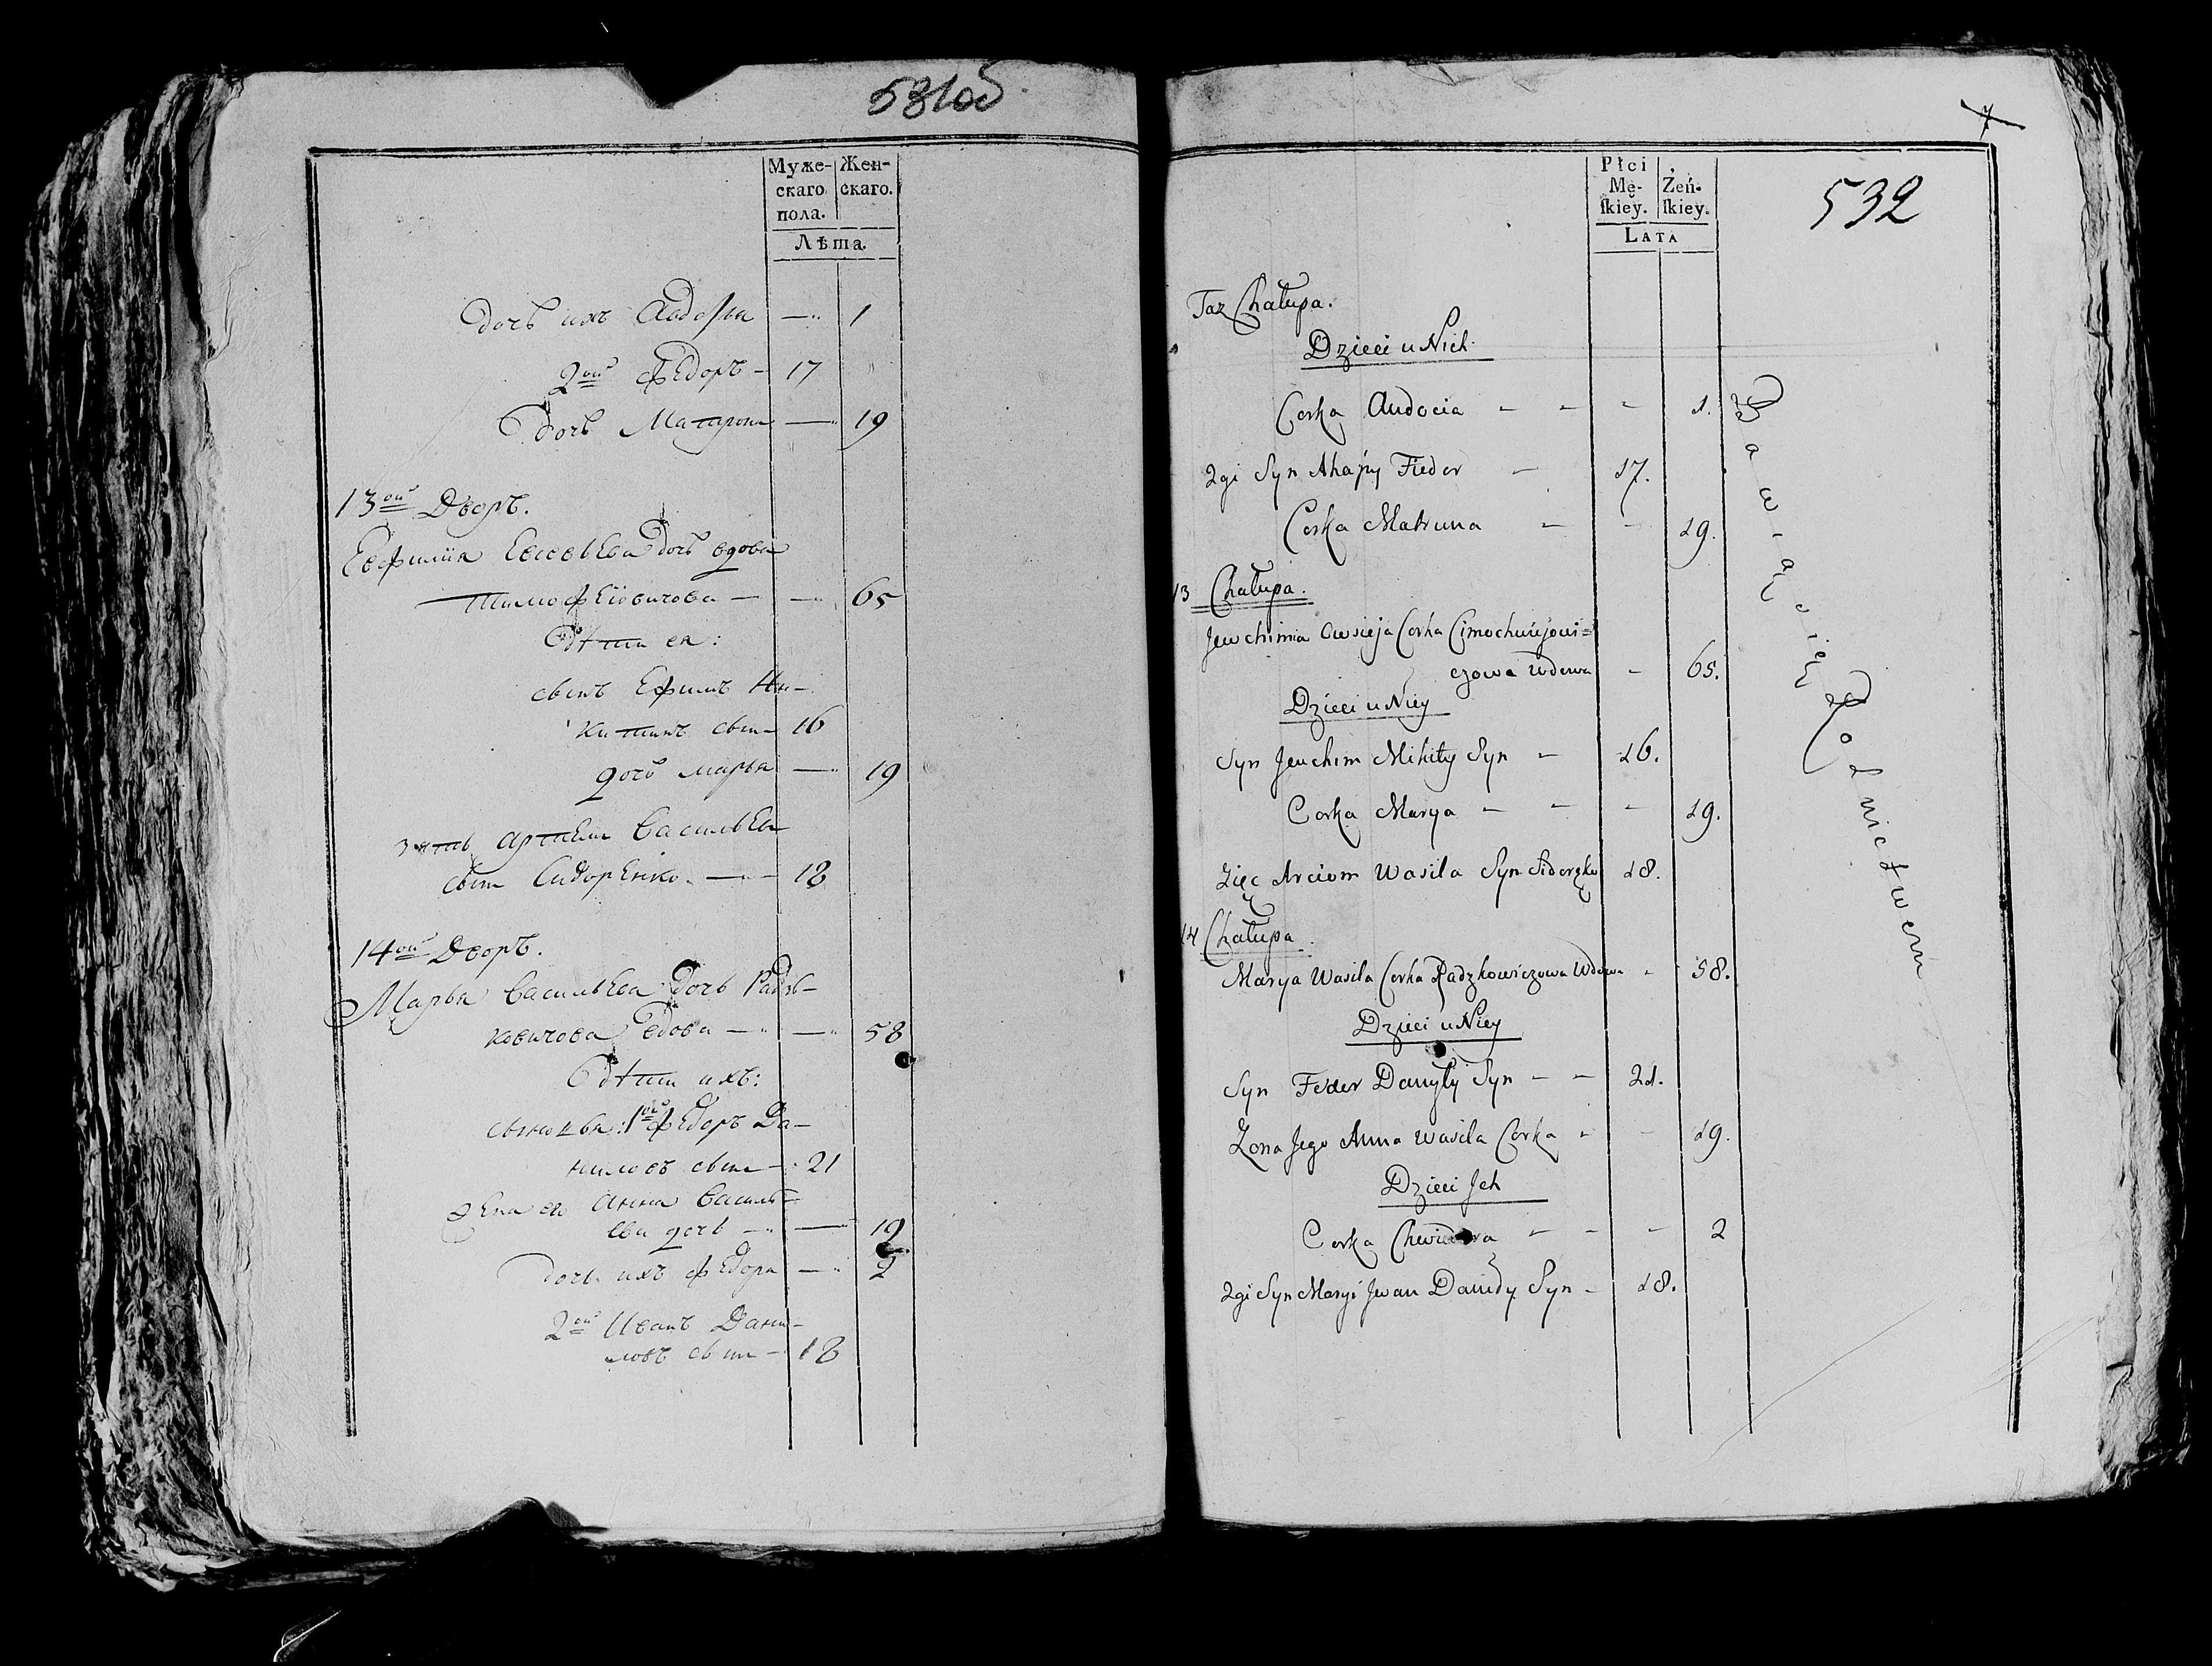 531об
Муже-
скаго
пола.
Жен-
скаго.
Лѣта.
дочь ихъ Авдотья — 1
2ой Федоръ — 17
дочь Матрона — 19
13ой Дворъ.
Евфимія Евсѣева дочь вдова
Тимофѣйовичова — — 65
Дѣти ея:
сынъ Ефимъ Ни-
китинъ сынъ 16
дочь Марья — 19
зять Артемъ Васильевъ
сынъ Сидоренко — 18
14ой Дворъ.
Марья Васильева дочь Радзь-
ковичова вдова — — 58
Дѣти ихъ:
сыновья: 1ой Федоръ Да-
ниловъ сынъ — 21
жена его Анна Василь-
ева дочь — — 19
дочь ихъ Федора — 2
2ой Иванъ Дани-
ловъ сынъ — 18
7
532
Płci
Mę-
skiey.
Żeń-
skiey.
LATA
Taz Chałupa.
Dzieci u Nich
Corka Audocia - - - 1.
2gi Syn Ahapy Fiedor - 17.
Corka Matruna - - 19.
13 Chałupa.
Jewchimia Awsieja Corka Cimochwiejowi=
czowa Wdowa - 65.
Dzieci u Niey
Syn Jeuchim Mikity Syn - 16.
Corka Marya - - - 19.
Zięć Arciom Wasila Syn Sidorenko 18.
14 Chałupa.
Marya Wasila Corka Radzkowiczowa Wdowa - 58.
Dzieci u Niey
Syn Fedor Danyły Syn - - 21.
Zona Jego Anna Wasila Corka - - 19.
Dzieci Jch
Corka Chwiedora - - - 2
2gi Syn Maryi Jwan Daniły Syn - 18.
Bawią się Rolnictwem